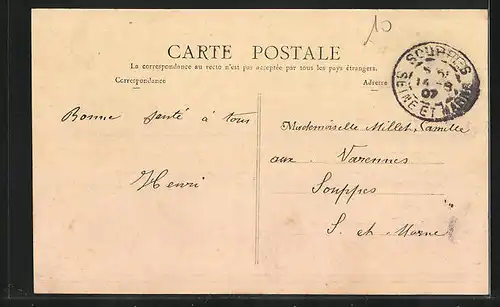 10
CARTE POSTALE
La correspondance au recto n'est pas acceptée par tous les pays étrangers.
Correspondance
Adresse
SOUPPES
07
SEINE ET MARNE
Bonne santé à tous
Henri
Mademoiselle Millet Camille
aux Varennes
Souppes
S. et Marne